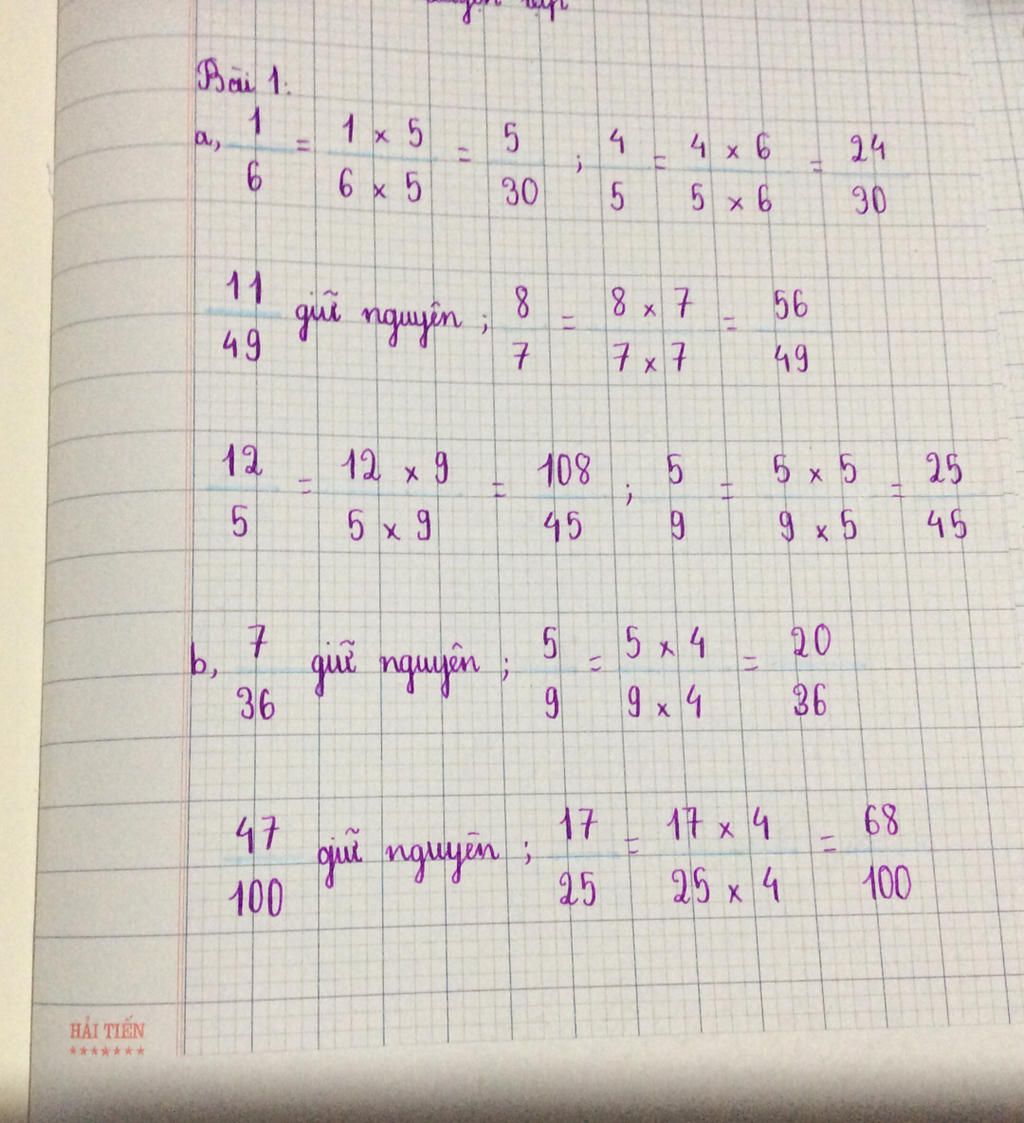 Bài 1:
a, 1/6 = 1 × 5 / 6 × 5 = 5/30 ; 4/5 = 4 × 6 / 5 × 6 = 24/30
11/49 giữ nguyên ; 8/7 = 8 × 7 / 7 × 7 = 56/49
12/5 = 12 × 9 / 5 × 9 = 108/45 ; 5/9 = 5 × 5 / 9 × 5 = 25/45
b, 7/36 giữ nguyên ; 5/9 = 5 × 4 / 9 × 4 = 20/36
47/100 giữ nguyên ; 17/25 = 17 × 4 / 25 × 4 = 68/100
HẢI TIẾN